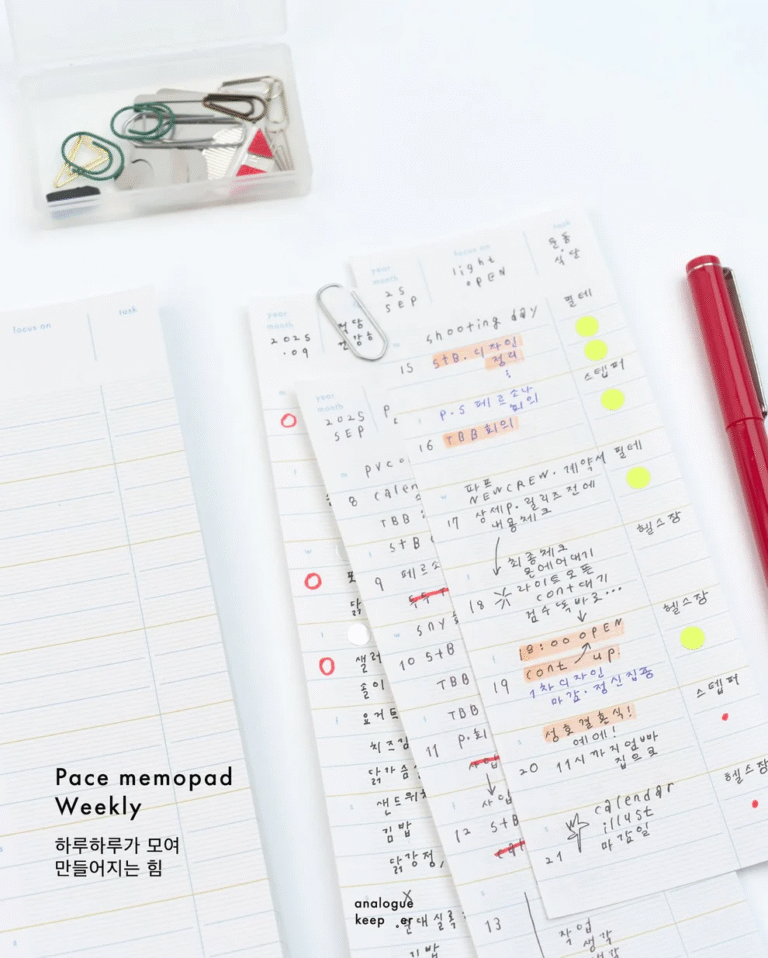 focus on
task
year
month
focus on
task
25
SEP
light
OPEN
운동
식단
shooting day
필테
15
STB. 디자인
정리
스텝퍼
P.S 페르소나
회의
16
TBB 회의
파포
NEWCREW. 계약서
필테
17
상세P. 릴리즈 전에
내용체크
헬스장
최종체크
온에어대기
18
라이트오픈
cont 대기
검수 똑바로...
헬스장
18:00 OPEN
cont up!
19
1차디자인
마감. 정신집중
스텝퍼
성호결혼식!
예에!
20
11시까지엄빠
집으로
헬스장
calendar
illust
21
마감일
year
month
2025
.09
year
month
2025
SEP
PVC
8
calen
TBB
STB
9
페르소
SNY
10
STB
TBB
TBB
11
P.회
사업
12
STB
13
작업
생각
샐러
요거트
치즈김
닭가슴
샌드위치
김밥
닭강정,
김밥
Pace memopad
Weekly
하루하루가 모여
만들어지는 힘
analogue
keep er